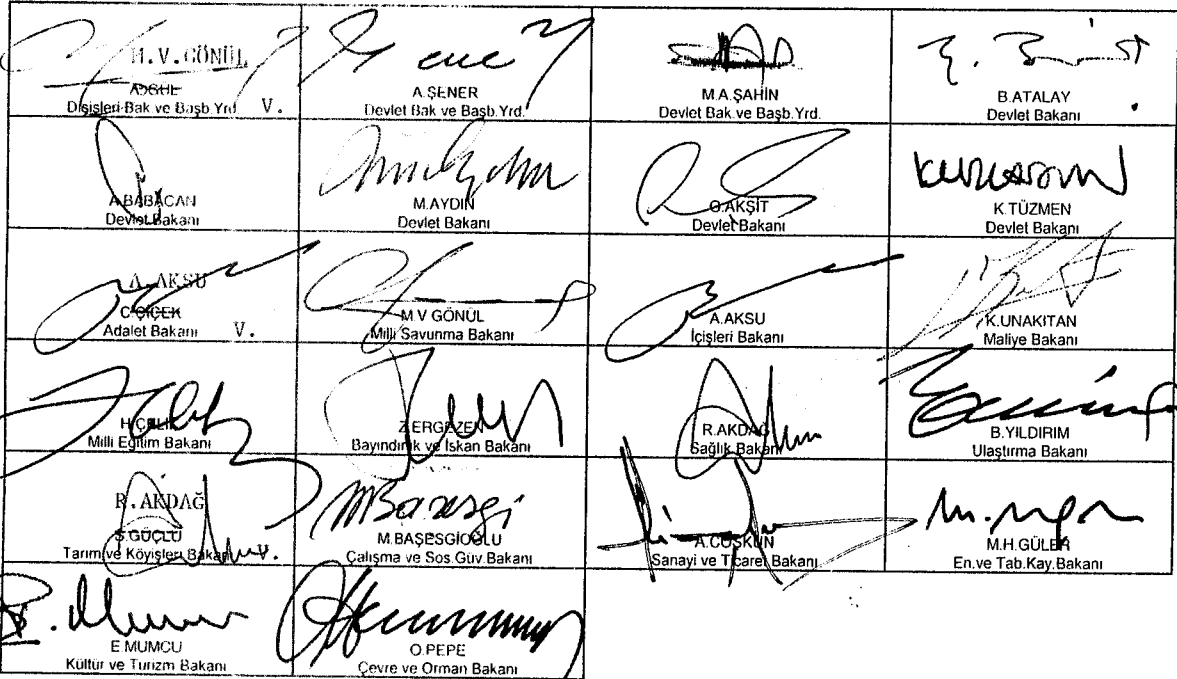 M.V.GÖNÜL
A.GÜL
Dışişleri Bak ve Başb.Yrd. V.
A.ŞENER
Devlet Bak ve Başb.Yrd.
M.A.ŞAHİN
Devlet Bak.ve Başb.Yrd.
B.ATALAY
Devlet Bakanı
A.BABACAN
Devlet Bakanı
M.AYDIN
Devlet Bakanı
G.AKŞİT
Devlet Bakanı
K.TÜZMEN
Devlet Bakanı
A.AKSU
C.ÇİÇEK
Adalet Bakanı V.
M.V GÖNÜL
Milli Savunma Bakanı
A.AKSU
İçişleri Bakanı
K.UNAKITAN
Maliye Bakanı
H.ÇELİK
Milli Eğitim Bakanı
Z.ERGEZEN
Bayındırlık ve İskan Bakanı
R.AKDAĞ
Sağlık Bakanı
B.YILDIRIM
Ulaştırma Bakanı
R.AKDAĞ
S.GÜÇLÜ
Tarım ve Köyişleri Bakanı V.
M.BAŞESGİOĞLU
Çalışma ve Sos.Güv.Bakanı
A.COŞKUN
Sanayi ve Ticaret Bakanı
M.H.GÜLER
En.ve Tab.Kay.Bakanı
E.MUMCU
Kültür ve Turizm Bakanı
O.PEPE
Çevre ve Orman Bakanı